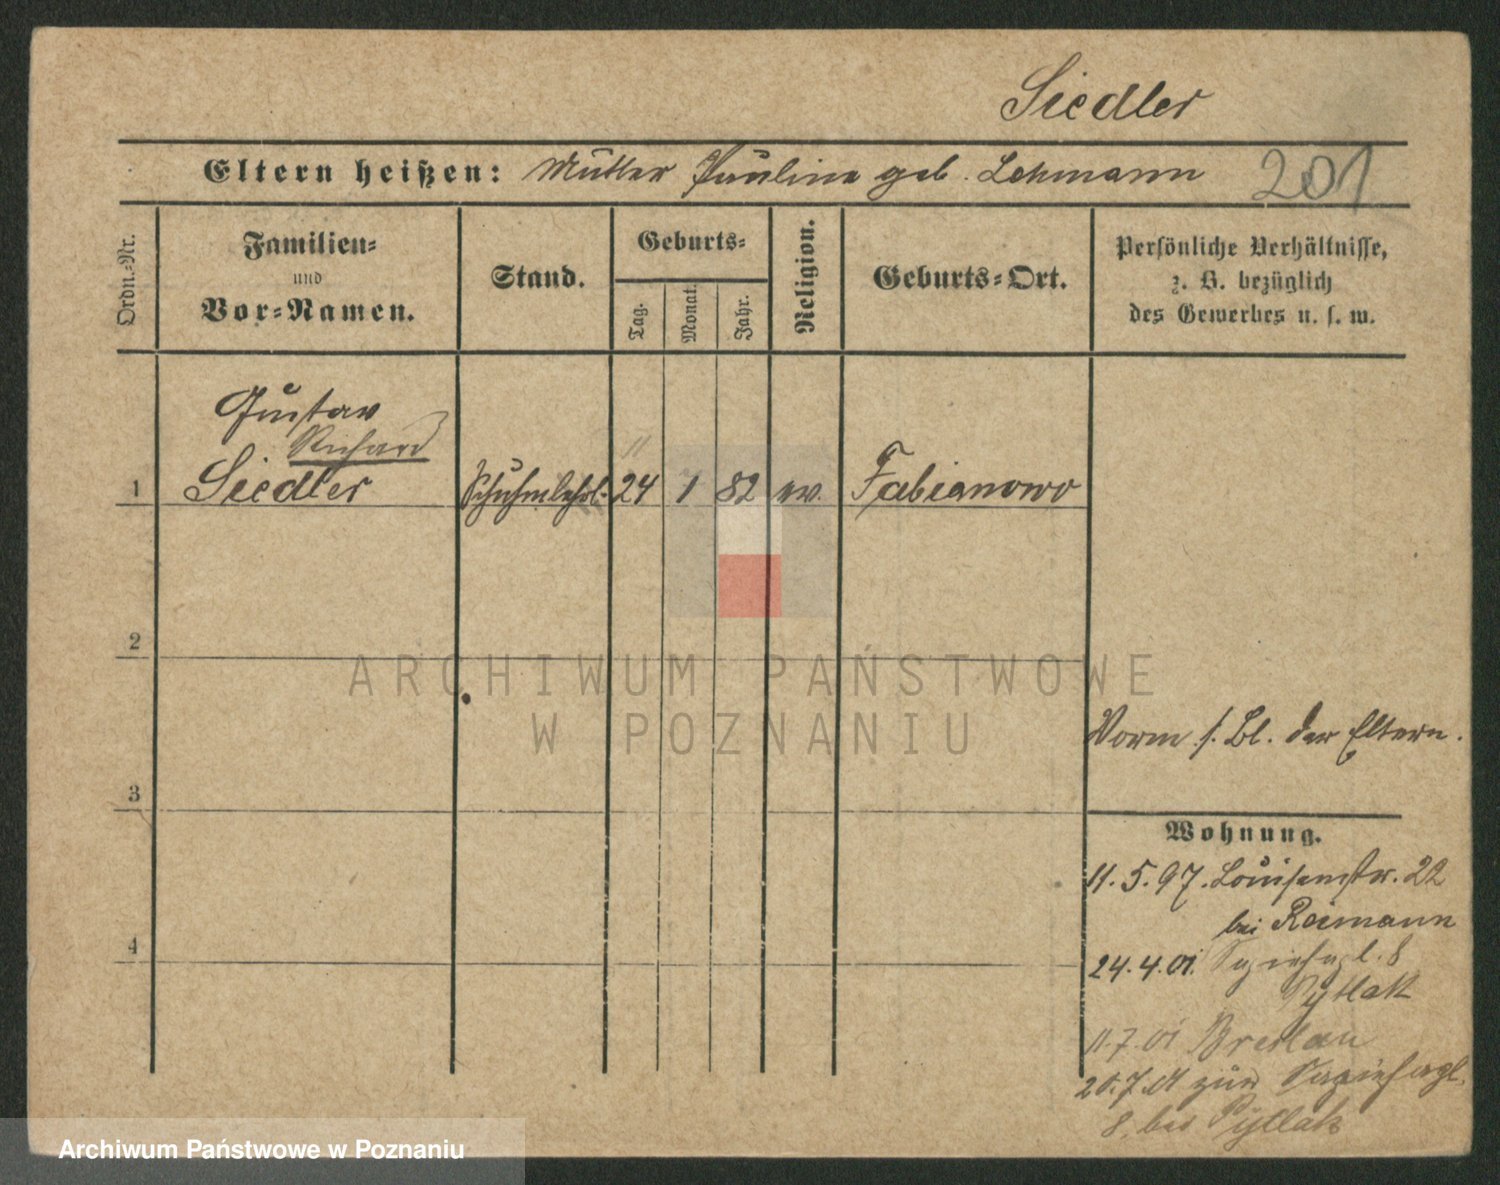 Siedler
Eltern heißen: Mutter Pauline geb. Lehmann 201
Ordn.-Nr.
Familien-
und
Vor-Namen.
Stand.
Geburts-
Tag.
Monat.
Jahr.
Religion.
Geburts-Ort.
Persönliche Verhältnisse,
z. B. bezüglich
des Gewerbes u. s. w.
Gustav
Richard
11
1 Siedler Schuhm.lehrl. 24 1 82 ev. Fabianowo
2
ARCHIWUM PAŃSTWOWE
W POZNANIU
Vorm. s. Bl. der Eltern.
3
Wohnung.
11.5.97. Louisenstr. 22
bei Reimann
4
24.4.01. 8
Pytlak
11.7.01 Breslau
20.7.01 zur
8. bei Pytlak
Archiwum Państwowe w Poznaniu